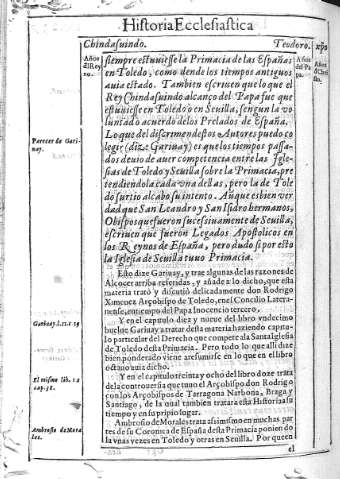 Historia Ecclesiastica
Chindasuindo.
Teodoro.
Años
siempre estuuiesse la Primacia de las Españas
en Toledo, como dende los tiempos antiguos
auia estado. Tambien escriuen lo que el
Rey Chindasuindo alcanço del Papa fue que
estuuiesse en Toledo o en Seuilla, segun la vo
luntad acuerdo de los Prelados de España.
Lo que del discrimen destos Autores puedo co
legir (dize Gariuay) es que los tiempos passa-
dos deuio de auer competencia entre las Igle-
sias de Toledo y Seuilla sobre la Primacia, pre
tendiendola cada vna dellas, pero la de Tole
do surtio al cabo su intento. Aũque es bien ver
dad que San Leandro y San Isidro hermanos,
Obispos que fueron sucesiuamente de Seuilla,
escriuen que fueron Legados Apostolicos en
los Reynos de España, pero dudo si por esto
la Iglesia de Seuilla tuuo Primacia.
Parecer de Gari-
uay.
Esto dize Gariuay, y trae algunas de las razones de
Alcocer arriba referidas, y añade a lo dicho, que esta
materia trató y discutió delicadamente don Rodrigo
Ximenez Arçobispo de Toledo, en el Concilio Latera-
nense, en tiempo del Papa Inocencio tercero.
Y en el capitulo diez y nueue del libro vndecimo
buelue Gariuay a tratar desta materia haziendo capitu-
lo particular del Derecho que compete a la Santa Iglesia
de Toledo desta Primacia. Pero todo lo que alli dize
bien ponderado viene a resumirse en lo que en el libro
octauo auia dicho.
Y en el capitulo treinta y ocho del libro doze trata
de la controuersia que tuuo el Arçobispo don Rodrigo
con los Arçobispos de Tarragona Narbona, Braga y
Santiago, de la qual tambien tratara esta Historia a su
tiempo y en su propio lugar.
Ambrosio de Morales trata assimismo en muchas par
tes de su Coronica de España desta Primacia poniendo
la vnas vezes en Toledo y otras en Seuilla. Por que en
el
Gariuay. l. 11. c. 19
El mismo lib. 12
cap. 38.
Ambrosio de Mora
les.